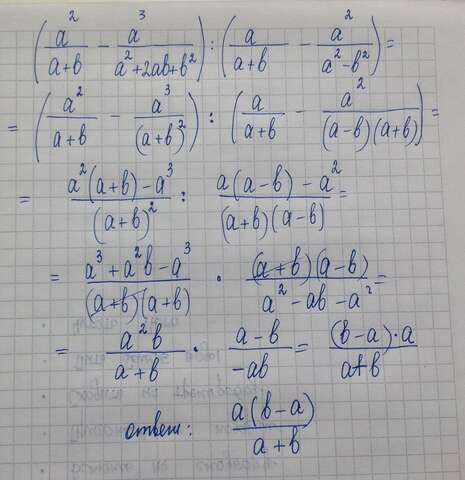 (a²/(a+b) - a³/(a²+2ab+b²)) : (a/(a+b) - a²/(a²-b²)) =
= (a²/(a+b) - a³/(a+b)²) : (a/(a+b) - a²/((a-b)(a+b))) =
= (a²(a+b)-a³)/(a+b)² : (a(a-b)-a²)/((a+b)(a-b)) =
= (a³+a²b-a³)/((a+b)(a+b)) · ((a+b)(a-b))/(a²-ab-a²) =
= a²b/(a+b) · (a-b)/(-ab) = ((b-a)·a)/(a+b)
ответ: a(b-a)/(a+b)